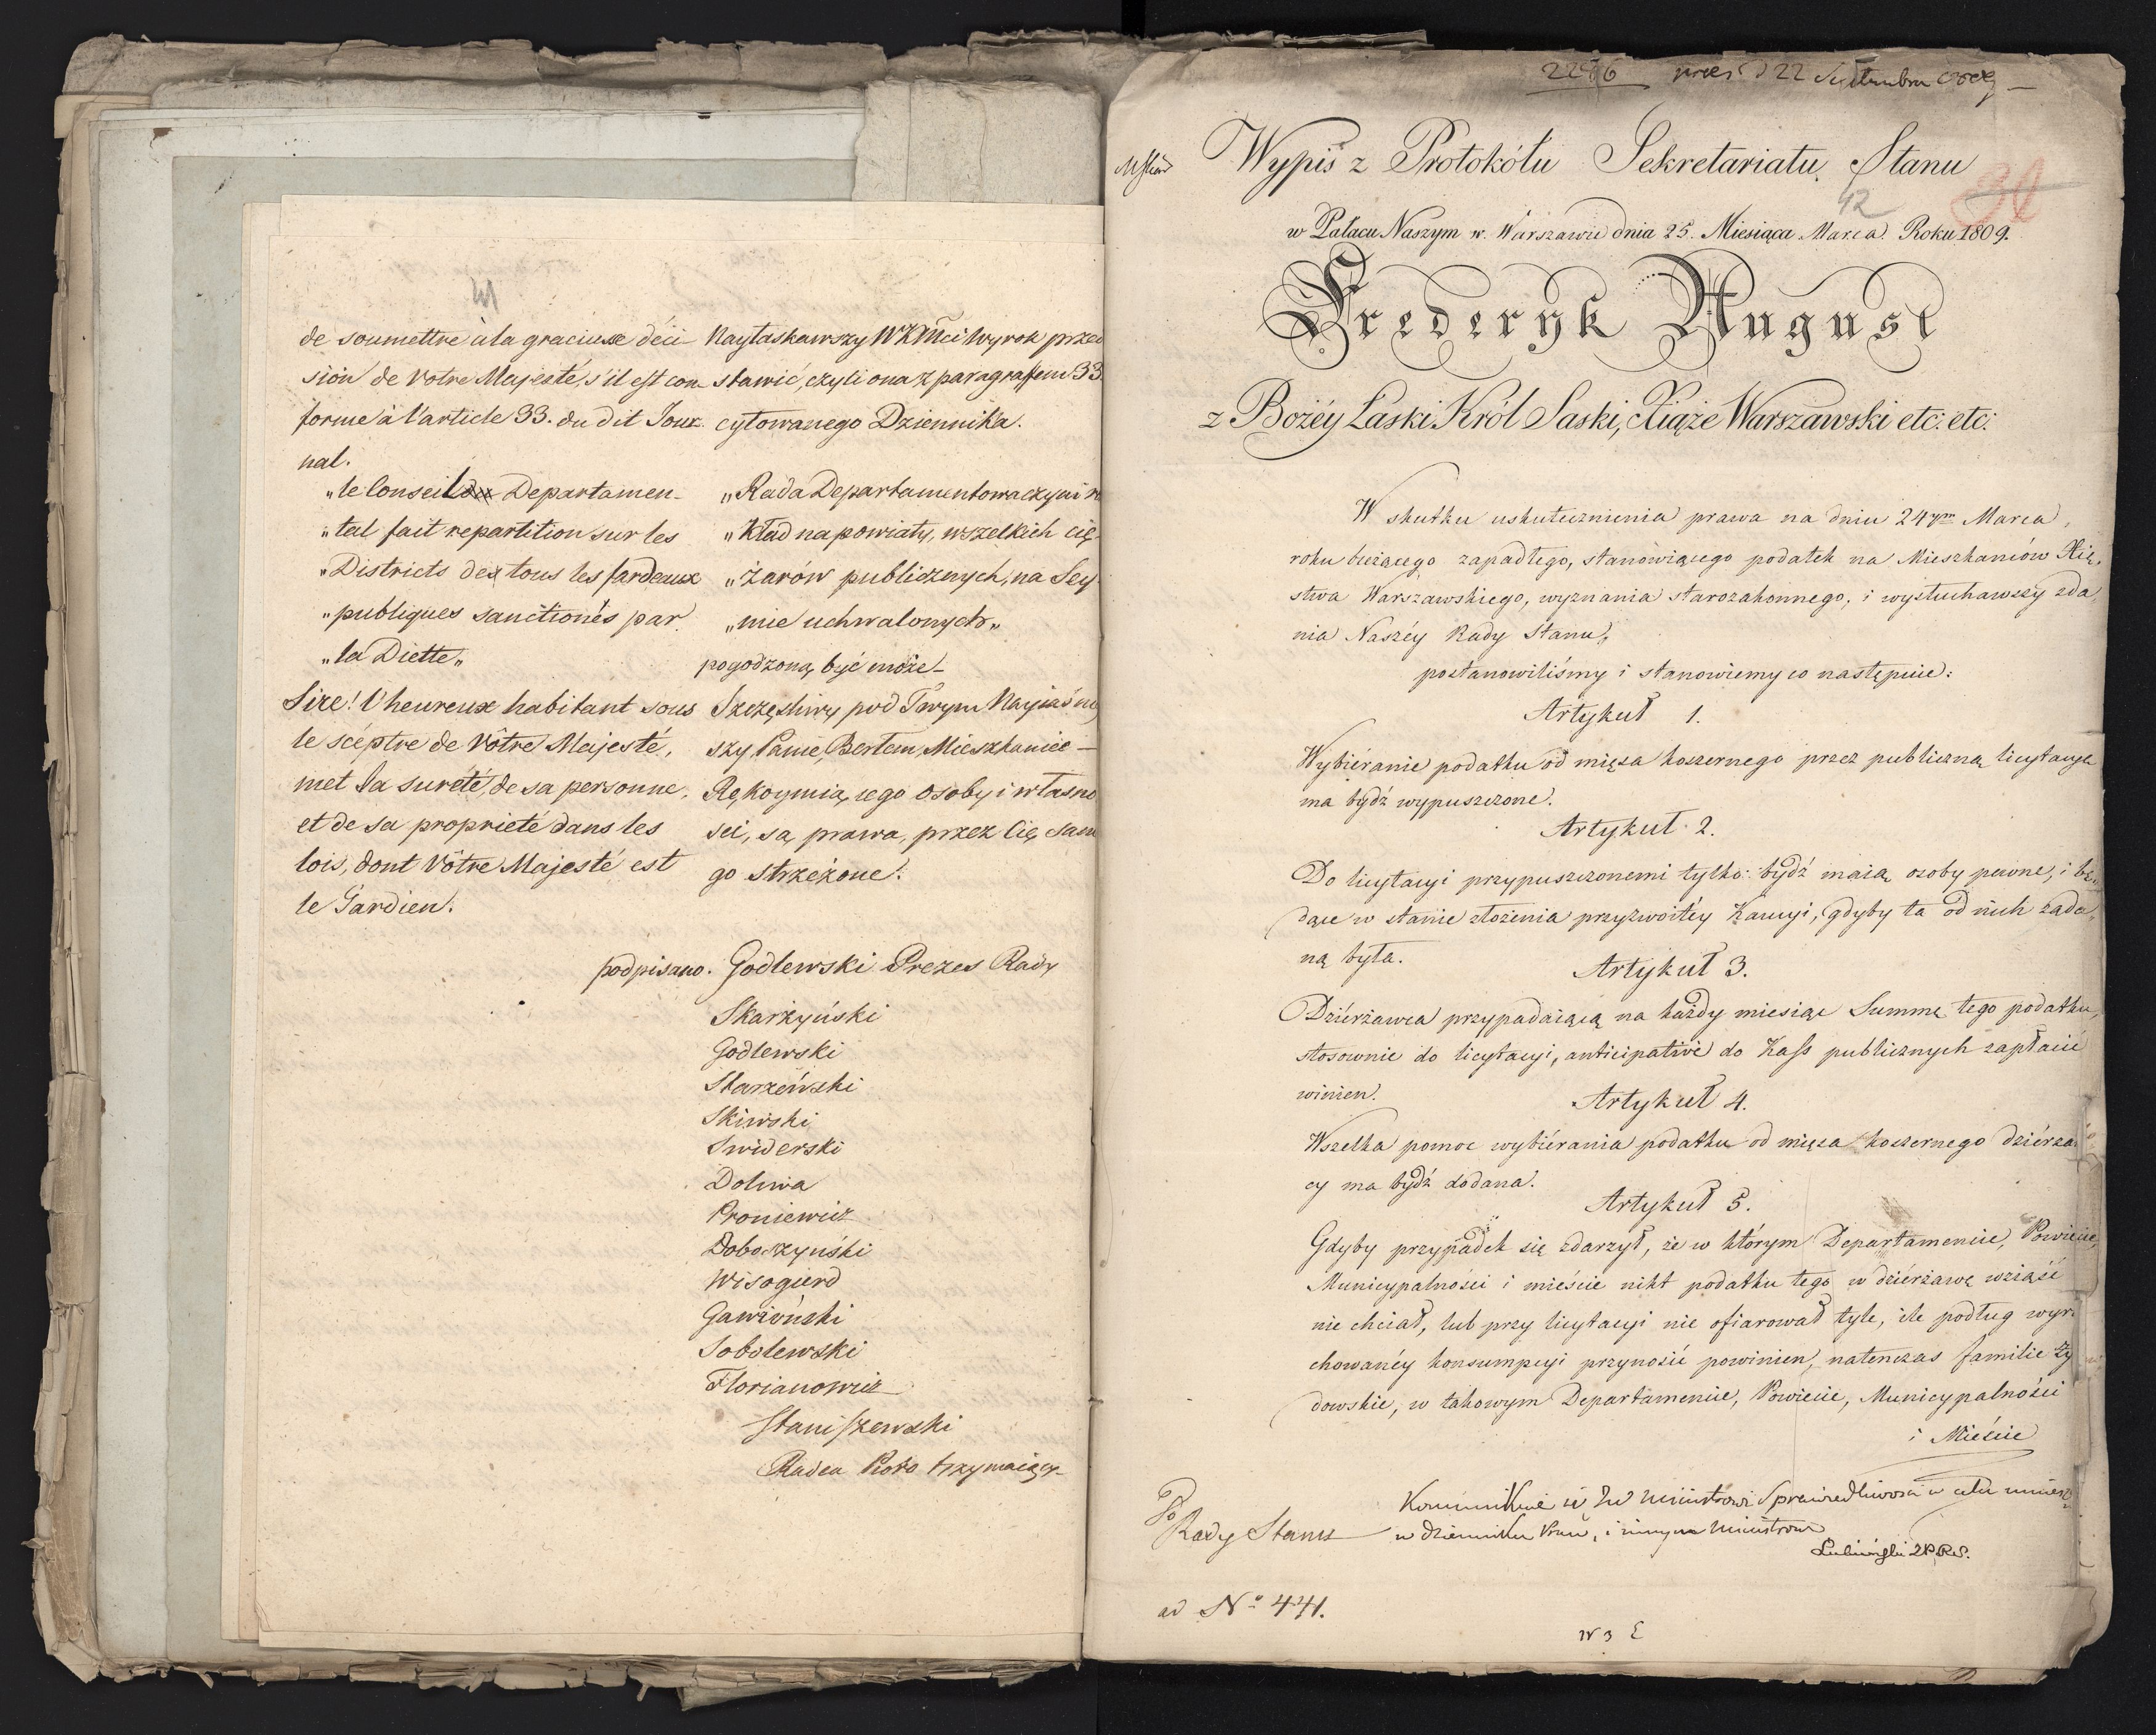 41
de soumettre à la graciuse déci-
sion de Votre Majesté, s'il est con-
forme à l'article 33. du dit Jour-
nal.
„le Conseil Departamen-
„tal fait repartition sur les
„Districts de tous les fardeaux
„publiques sanctionés par
„la Diette„
Sire! l'heureux habitant sous
le scéptre de Vôtre Majesté,
met la sureté, de sa personne,
et de sa proprieté dans les
lois, dont Vôtre Majesté est
le Gardien.
Naytaskawszy WKMci Wyrok przed
stawić, czyli ona z paragrafem 33.
cytowanego Dziennika.
„Rada Departamentowa czyni ro
„kład na powiaty, wszelkich cię-
„żarów publicznych, na Sey-
„mie uchwalonych„
pogodzoną być może-
Szczęśliwy pod Twym Nayiaśniey
szy Panie, Berłem, Mieszkaniec —
Rękoymią iego osoby i własno
ści, są prawa, przez Cię same
go strzeżone.
podpisano. Godlewski Prezes Rady
Skarżyński
Godlewski
Starzeński
Skiwski
Swiderski
Doliwa
Proniewicz
Doboszyński
Wisogierd
Gawroński
Sobolewski
Florianowicz
Staniszewski
Radca Pióro trzymaiący-
2256 prez: d 22 Septembra 1809
Wypis z Protokółu Sekretariatu Stanu
42
w Pałacu Naszym w Warszawie dnia 25. Miesiąca Marca Roku 1809.
Fryderyk August
z Bożéy Łaski Król Saski, Xiąże Warszawski etc: etc:
W skutku uskutecznienia prawa na dniu 24ym Marca,
roku bieżącego zapadłego, stanowiącego podatek na Mieszkańców Xię,
stwa Warszawskiego, wyznania starozakonnego, i wysłuchawszy zda,
nia Naszéy Rady Stanu,
postanowiliśmy i stanowiemy co następuie:
Artykuł 1.
Wybiéranie podatku od mięsa koszernego przez publiczną licytacyą
ma bydź wypuszczone.
Artykuł 2.
Do licytacyi przypuszczonemi tylko bydź maią osoby pewne, i bę,
dące w stanie złożenia przyzwoitéy Kaucyi, gdyby ta od nich żąda,
ną była.
Artykuł 3.
Dziérżawca przypadaiącą na każdy miesiąc Summę tego podatku,
stosownie do licytacyi, anticipative do Kass publicznych zapłacić
winien.
Artykuł 4.
Wszelka pomoc wybiérania podatku od mięsa koszernego dziérża
cy ma bydź dodana.
Artykuł 5.
Gdyby przypadek się zdarzył, że w którym Departamencie, Powiecie,
Municypalności i mieście nikt podatku tego w dziérżawę wziąść
nie chciał, lub przy licytacyi nie ofiarował tyle, ile podług wyr.
chowanéy konsumpcyi przynosić powinien, natenczas familie ży
dowskie, w takowym Departamencie, Powiecie, Municypalności
i Mieście
Do
Rady Stanu
Kommunikuie się JW Ministrowi Sprawiedliwości w celu umieszcz
w dzienniku Praw, i innym Ministrom
Lubieński
ad No 441.
N 3